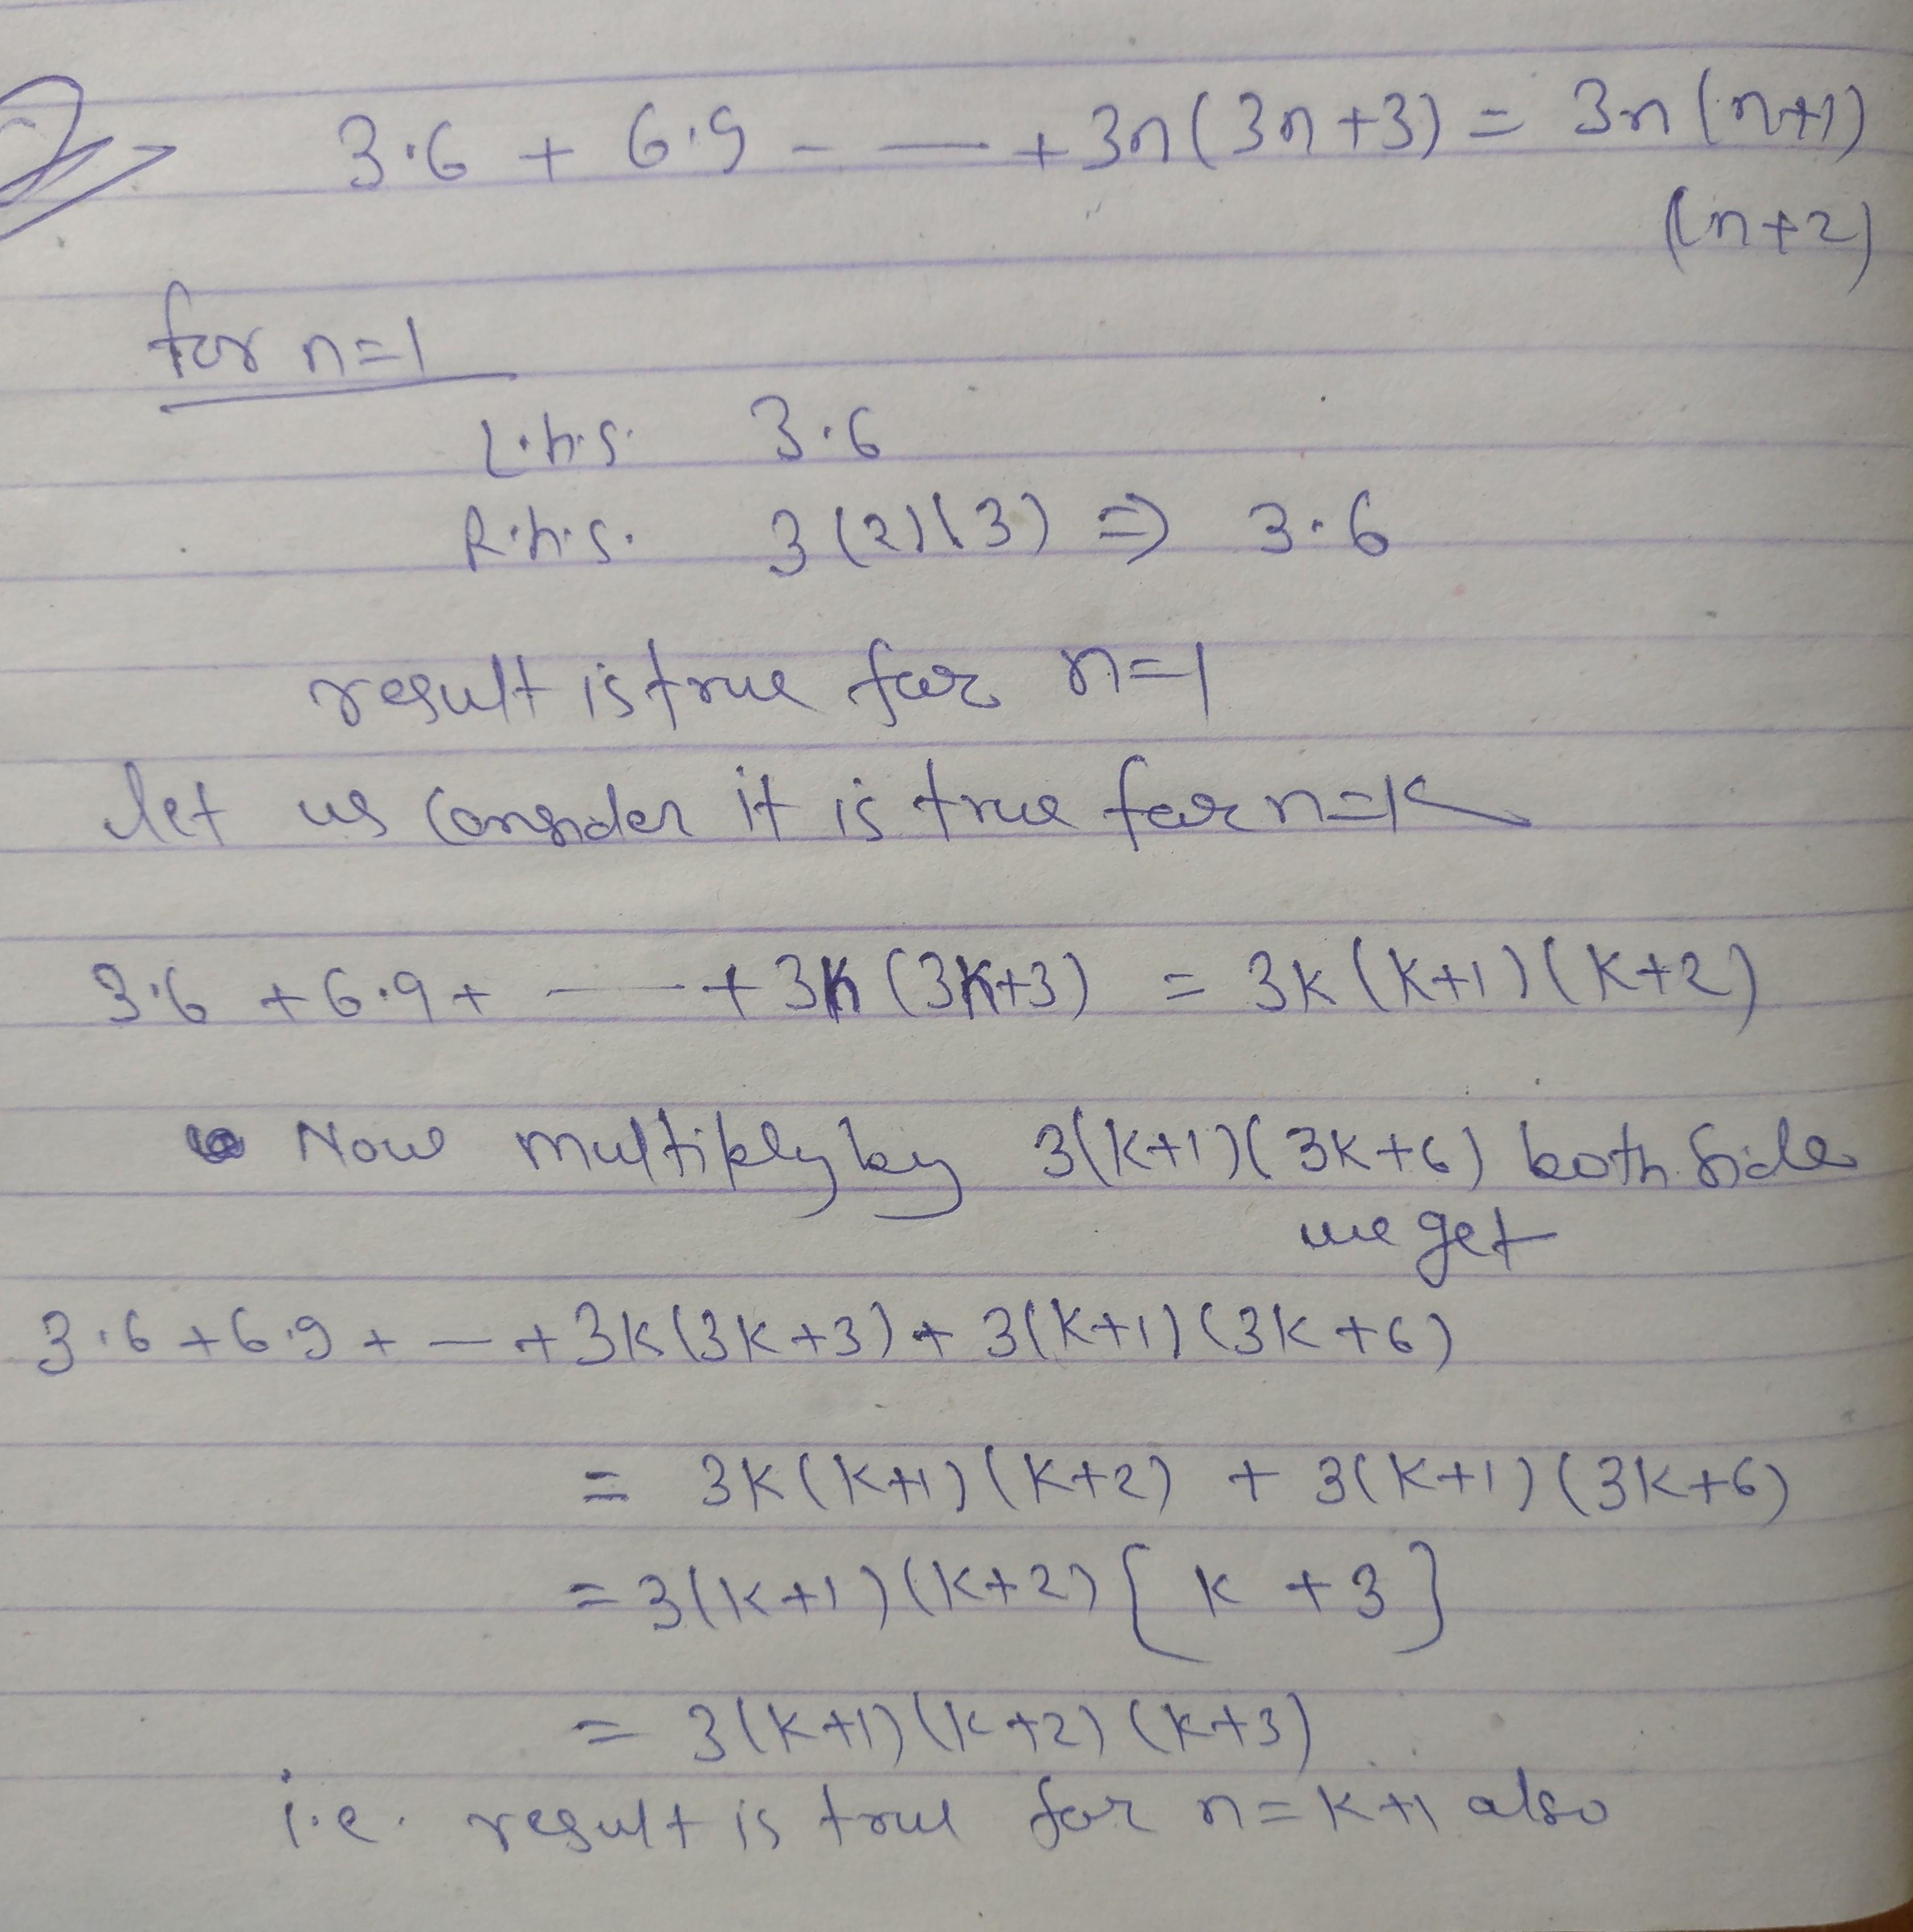 3·6 + 6·9 - — + 3n(3n+3) = 3n(n+1)
(n+2)
for n=1
L.h.s. 3·6
R.h.s. 3(2)(3) ⇒ 3·6
result is true for n=1
let us consider it is true for n=k
3·6 + 6·9 + ---- + 3k(3k+3) = 3k(k+1)(k+2)
Now multiply by 3(k+1)(3k+6) both side
we get
3·6+6·9+ - - +3k(3k+3)+3(k+1)(3k+6)
= 3k(k+1)(k+2) + 3(k+1)(3k+6)
= 3(k+1)(k+2) [k +3}
= 3(k+1)(k+2)(k+3)
i.e. result is true for n=k+1 also